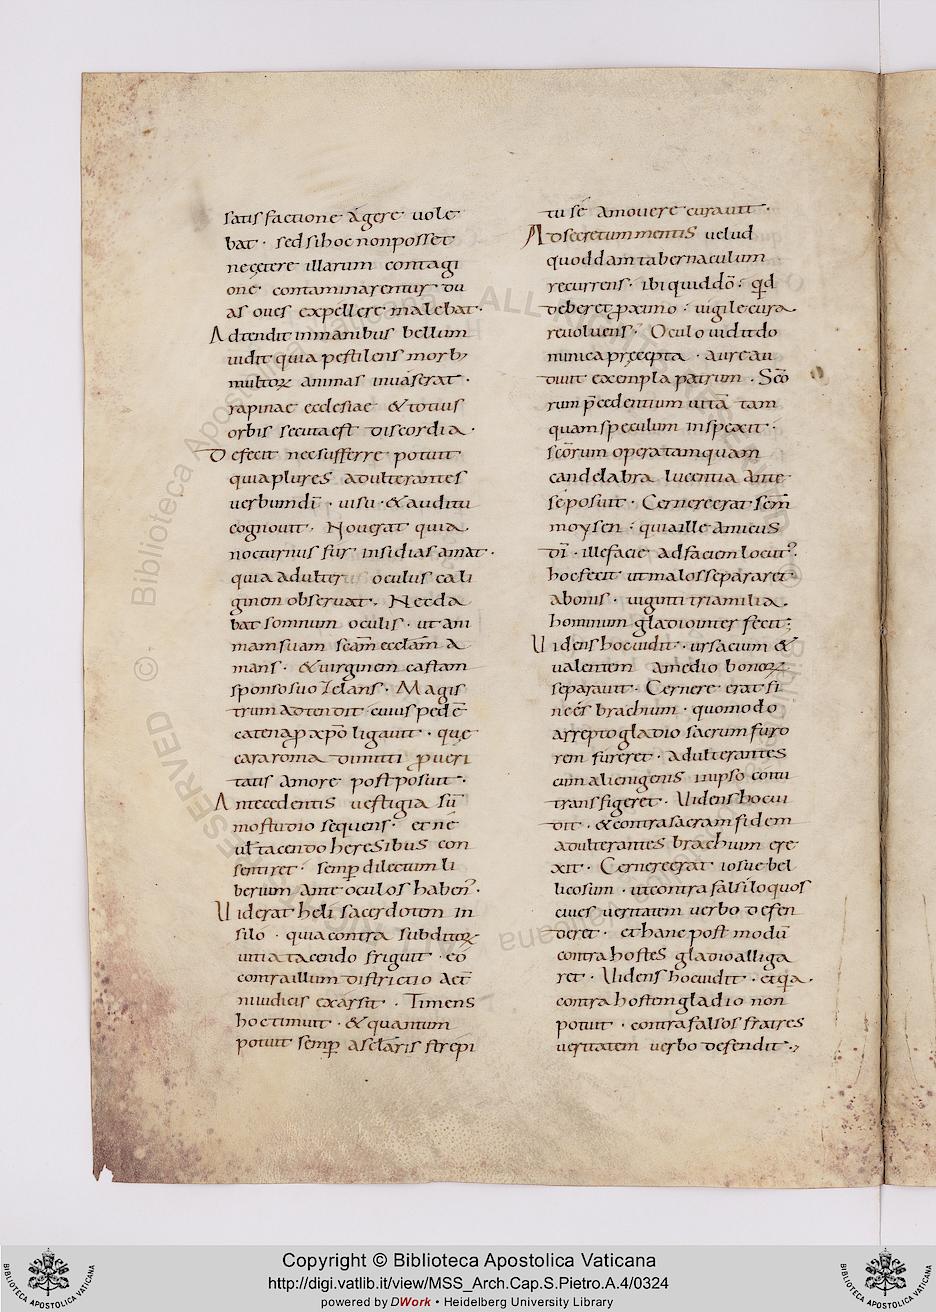 satisfactione agere uole
bat · sed si hoc non posset
ne cetere illarum contagi
one contaminarentur du
as oues expellere malebat ·
Adtendit in manibus bellum
uidit quia pestilens morb;
multoꝝ animas inuaserat ·
rapinae ecclesiae & totius
orbis secuta est discordia ·
Defecit nec sufferre potuit
quia plures adulterantes
uerbum dī · uisu · & auditu
cognouit · Nouerat quia
nocturnus fur insidias amat ·
quia adulter oculus cali
ginem obseruat · Nec da
bat somnum oculis · ut ani
mam suam scām ecclām a
mans · & uirginem castam
sponso suo Zelans · Magis
trum adtendit cuius pedē
catena ꝓ xp̄o ligauit · quę
cara roma dimitti ꝓ ueri
tatis amore postposuit ·
Antecedentis uestigia sū
mo studio sequens · et nē
ul tacendo heresibus con
sentiret · semp̄ dilectum li
berium ante oculos haben ·
Uiderat heli sacerdotem in
silo · quia contra subditoꝝ
uitia tacendo friguit · eō
contra illum districtio aet̄
ni iudicis exarsit · Timens
hoc timuit · & quantum
potuit semp̄ a sclāris strepi
tu sé amouere curauit ·
Ad secretum mentis uelud
quoddam tabernaculum
recurrens · ibi quid dō ; qd
deberet ꝓximo · uigile cura
reuoluens · Oculo uidit do
minica pręcepta · aure au
diuit exempla patrum · Scō
rum p̄cedentium uitā tam
quam speculum inspexit ·
scōrum opera tamquam
candelabra lucentia ante
sé posuit · Cernere erat scm̄
moysen ; quia ille amicus
dī · ille facie ad faciem locut ·
hoc fecit ut malos separaret
a bonis · uiginti tria milia
hominum gladio inter fecit ;
Uidens hoc uidit · ursacium &
ualentem a medio bonoꝝ
separauit · Cernere erat fi
neés brachium · quomodo
arrepto gladio sacrum furo
rem fureret · adulterantes
cum alienigenis in ipso coitu
transfigeret · Uidens hoc ui
dit · & contra sacram fidem
adulterantes brachium ere
xit · Cernere erat iosue bel
licosum · ut contra falsiloquos
ciues ueritatem uerbo defen
deret · et hanc post modū
contra hostes gladio alliga
ret · Uidens hoc uidit · et qa
contra hostem gladio non
potuit · contra falsos fratres
ueritatem uerbo defendit ·,
Copyright © Biblioteca Apostolica Vaticana
http://digi.vatlib.it/view/MSS_Arch.Cap.S.Pietro.A.4/0324
powered by DWork • Heidelberg University Library